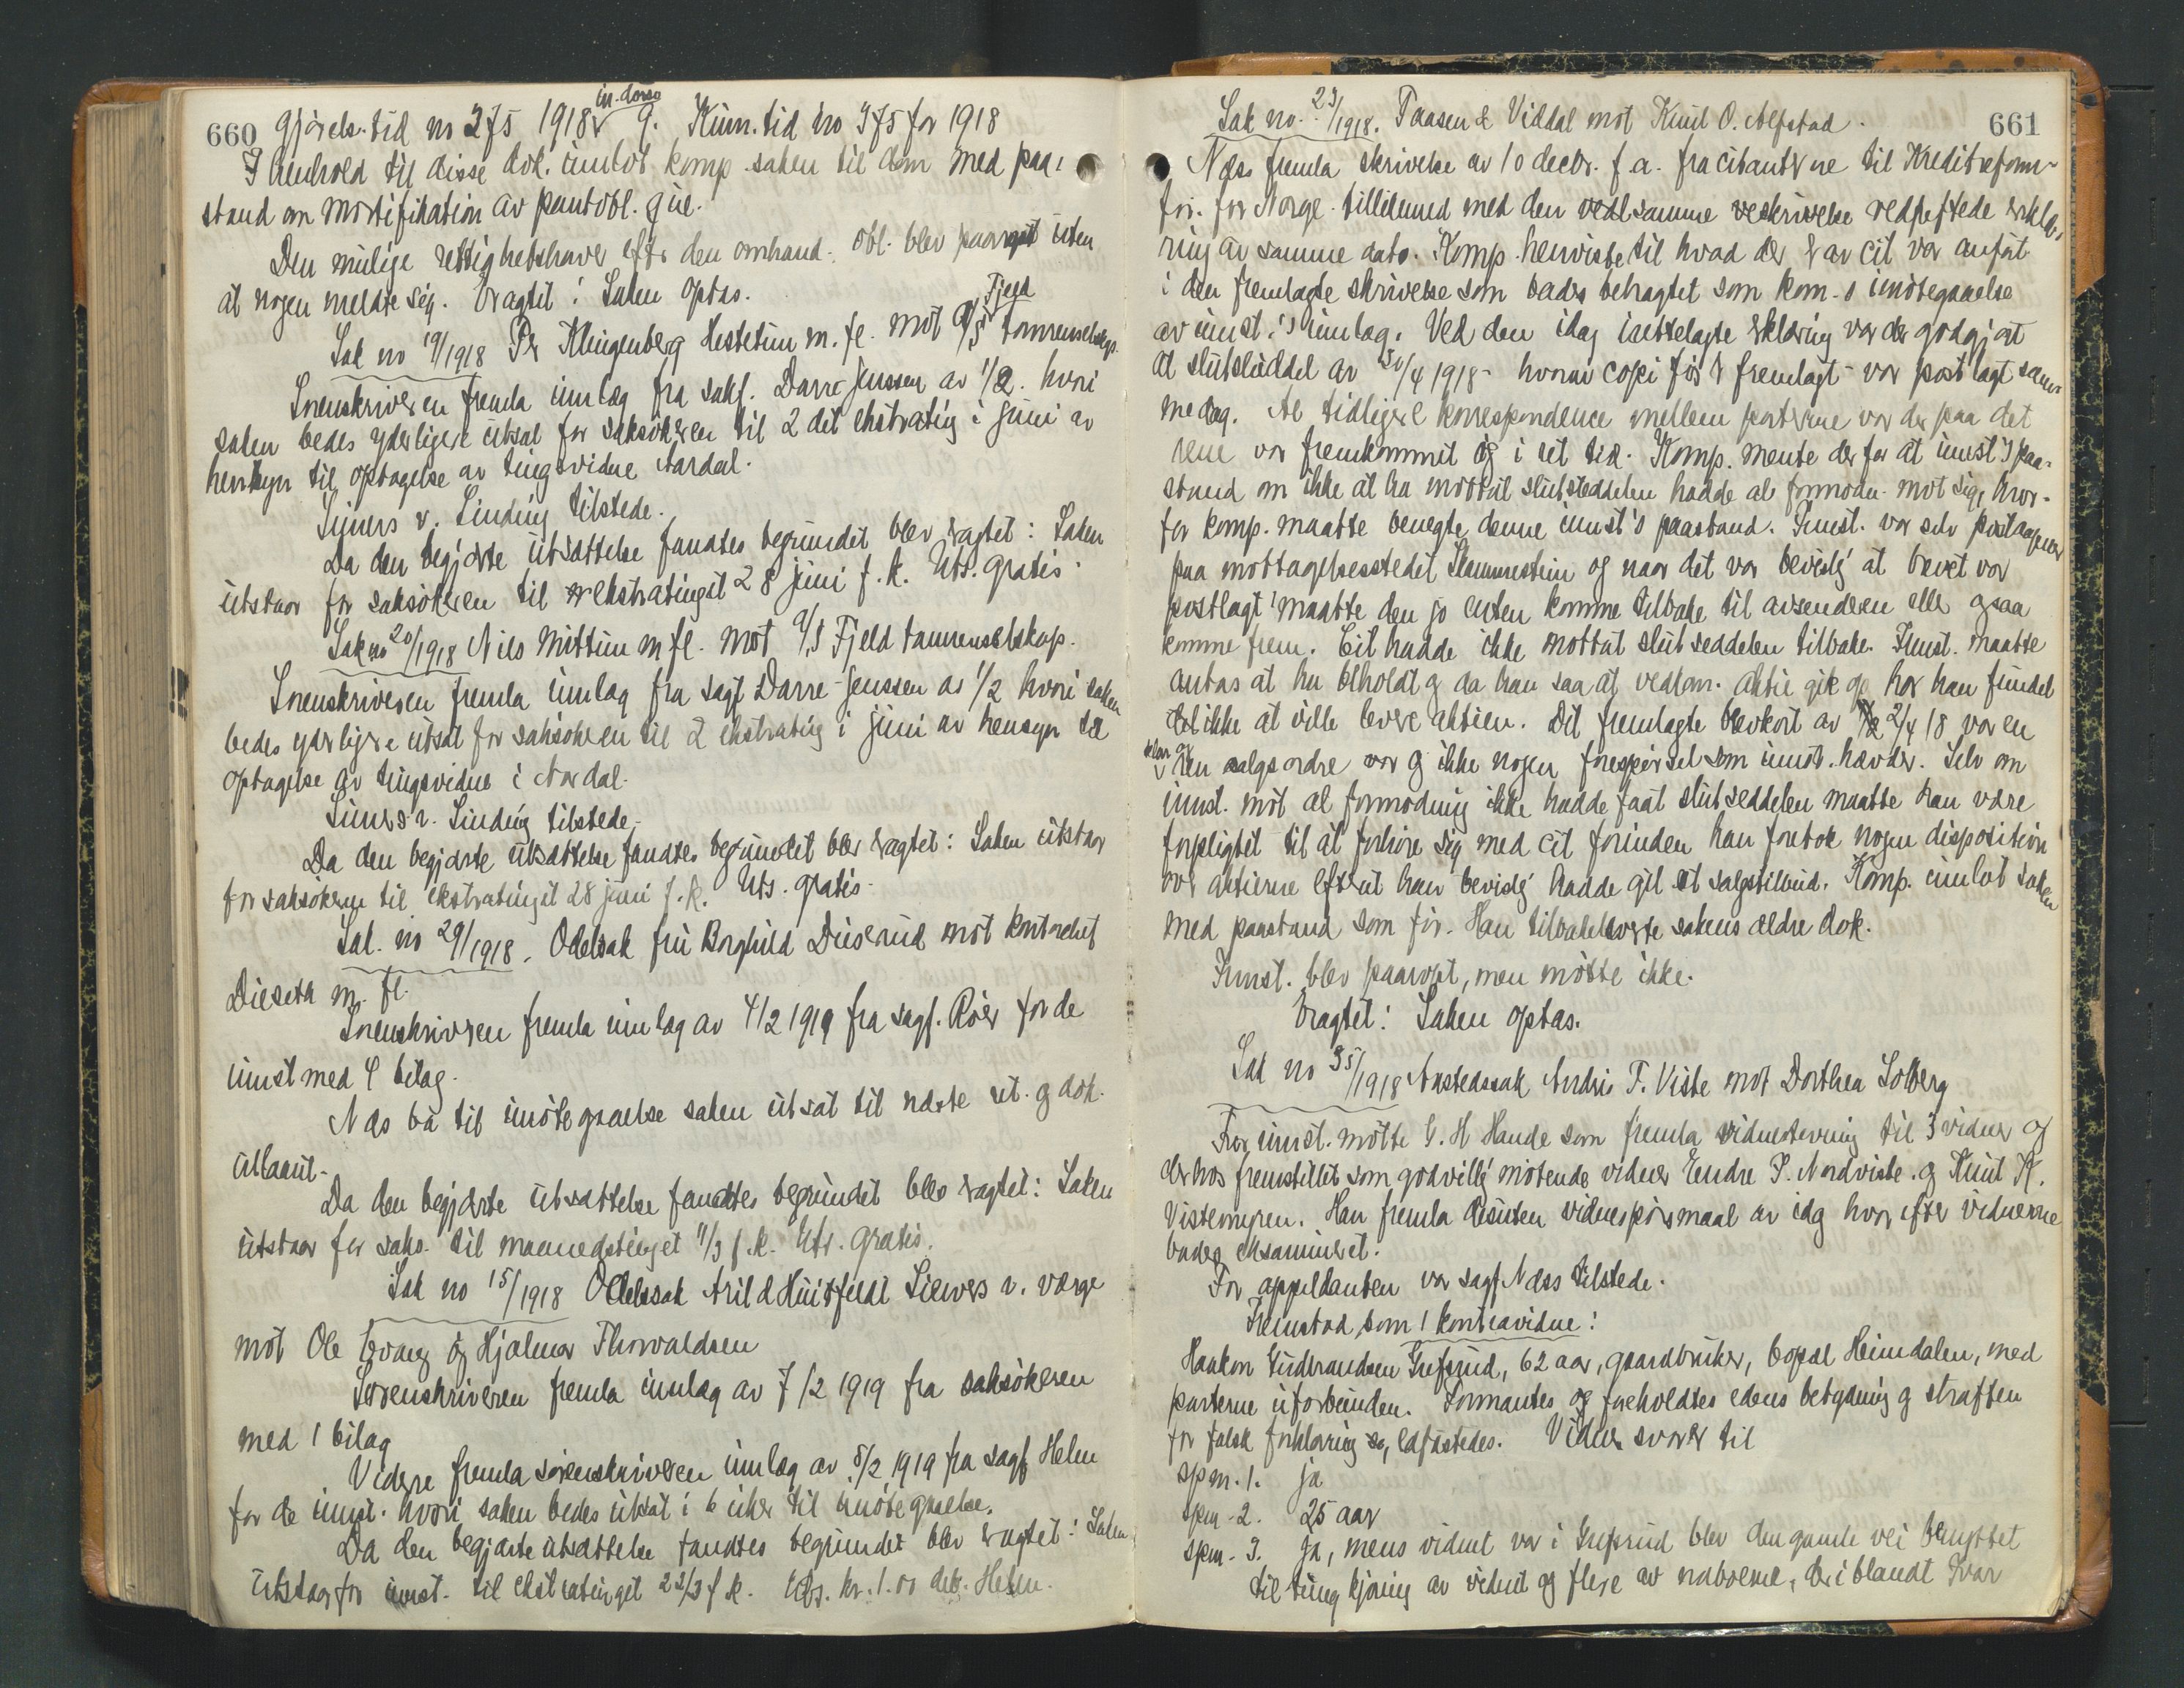 660 gjørels.tid no 275 1918 in dorso 9. Kunn.tid no 375 for 1918
I henhold til disse dok. indlot komp. saken til dom med paa-
stand om mortifikation av pantobl. gjel.
Den mulige rettighetshaver efter den omhand. obl. blev paaropt uten
at nogen meldte sig. Eragtet: Saken optas.
Sak no 19/1918 Pr Klingenberg Hestetun m. fl. mot A/S Fjeld tamrenselskap.
Sorenskriveren fremla innlæg fra sakf. Darre Jenssen av 1/2. hvori
saken bedes yderligere utsat for saksøkeren til 2 det ekstrating i juni av
hensyn til optagelse av tingsvidne Aardal.
Siuers v. Linding tilstede.
Da den begjærte utsættelse fandtes begrundet blev eragtet: Saken
utstaar for saksøkeren til ekstratinget 28 juni f. k. Uts. gratis.
Sak no 20/1918 Nils Mittun m fl. mot A/S Fjeld tamrenselskap.
Sorenskriveren fremla innlæg fra sagf Darre-Jenssen av 1/2 hvori saken
bedes yderligere utsat for saksøkeren til 2 ekstrating i juni av hensyn til
optagelse av tingsvidne i Aardal.
Siuers v. Linding tilstede.
Da den begjærte utsættelse fandtes begrundet blev eragtet: Saken utstaar
for saksøkeren til ekstratinget 28 juni f. k. Uts. gratis.
Sak no 29/1918. Odelsak fru Borghild Diserud mot kontorchef
Diesett m. fl.
Sorenskriveren fremla innlæg av 4/2 1919 fra sagf. Roer for de
innst med 4 bilag.
Næs ba til imøtegaaelse saken utsat til næste ret. og dok.
utlaant.
Da den begjærte utsættelse fandtes begrundet blev eragtet: Saken
utstaar for saks. til maanedstinget 11/3 f. k. Uts. gratis.
Sak no 15/1918 Odelssak Arild Huitfeldt Siewers v. værge
mot Ole Evang og Hjalmar Thorvaldsen
Sorenskriveren fremla innlæg av 7/2 1919 fra saksøkeren
med 1 bilag
Videre fremla sorenskriveren innlæg av 8/2 1919 fra sagf Helm
for de innst. hvori saken bedes utsat i 6 uker til imøtegaaelse.
Da den begjærte utsættelse fandtes begrundet blev eragtet: Saken
utstaar for innst. til ekstratinget 22/3 f k. Uts. kr. 1.00 deb. Helm.
Sak no. 23/1918. Faasen & Viddal mot Knut O. Alfstad. 661
Næss fremla skrivelse av 10 decbr. f.a. fra citanterne til Kreditreform-
for. for Norge tillikemed med den vedl samme veskrivelse vedheftede erklæ-
ring av samme dato. Komp. henviste til hvad der av cit var anført
i den fremlagte skrivelse som bedes betragtet som kom-s imøtegaaelse
av innst.'s innlæg. Ved den idag irettelagte erklæring var der godgjort
at slutseddel av 30/4 1918 - hvorav copi før er fremlagt - var post lagt sam-
me dag. Al tidligere korrespondence mellem parterne var der paa det
rene var fremkommet og i ret tid. Komp. mente der for at innst's paa-
stand om ikke at ha mottat slutseddelen hadde al formodn. mot sig, hvor-
for komp. maatte benegte denne innst's paastand. Innst. var selv postaapner
paa mottagelsesstedet Skammestein og naar det var bevislig at brevet var
postlagt maatte den jo enten komme tilbake til avsenderen eller ogsaa
komme frem. Cit hadde ikke mottat slutseddelen tilbake. Innst. maatte
antas at ha beholdt og da han saa at vedkom. aktie gik op har han fundet
det ikke at ville levere aktien. Det fremlagte brevkort av 2/4 18 var en
klar og ren salgsordre var og ikke nogen forespørsel som innst. hævder. Selv om
innst. mot al formodning ikke hadde faat slutseddelen maatte han være
forpligtet til at forhøre sig med cit forinden han foretok nogen disposition
over aktierne efterat han bevislig hadde git et salgstilbud. Komp. innlot saken
med paastand som før. Han tilbakeleverte sakens ældre dok.
Innst. blev paaropt, men møtte ikke.
Eragtet: Saken optas.
Sak no 35/1918 Aastedssak Andris T. Viste mot Dorthea Solberg
For innst. møtte G. H Hande som fremla vidnestevning til 3 vidner og
derhos fremstillet som godvillig møtende vidner Endre P. Nordviste. og Knut K.
Vistemyren. Han fremla desuten vidnespørsmaal av idag hvorefter vidnerne
bades eksaminert.
For appellanten var sagf Næss tilstede.
Fremstod som 1 kontravidne:
Haakon Gudbrandsen Grefsrud, 62 aar, gaardbruker, bopæl Heimdalen, med
parterne uforbunden. Formantes og foreholdtes edens betydning og straffen
for falsk forklaring og edfæstedes. Vidnet svarer til
spm. 1. ja
spm - 2. 25 aar
spm - 3. ja, mens vidnet var i Grefsrud blev den gamle vei benyttet
til tung kjøring av vidnet og flere av naboerne, deriblandt Ivar